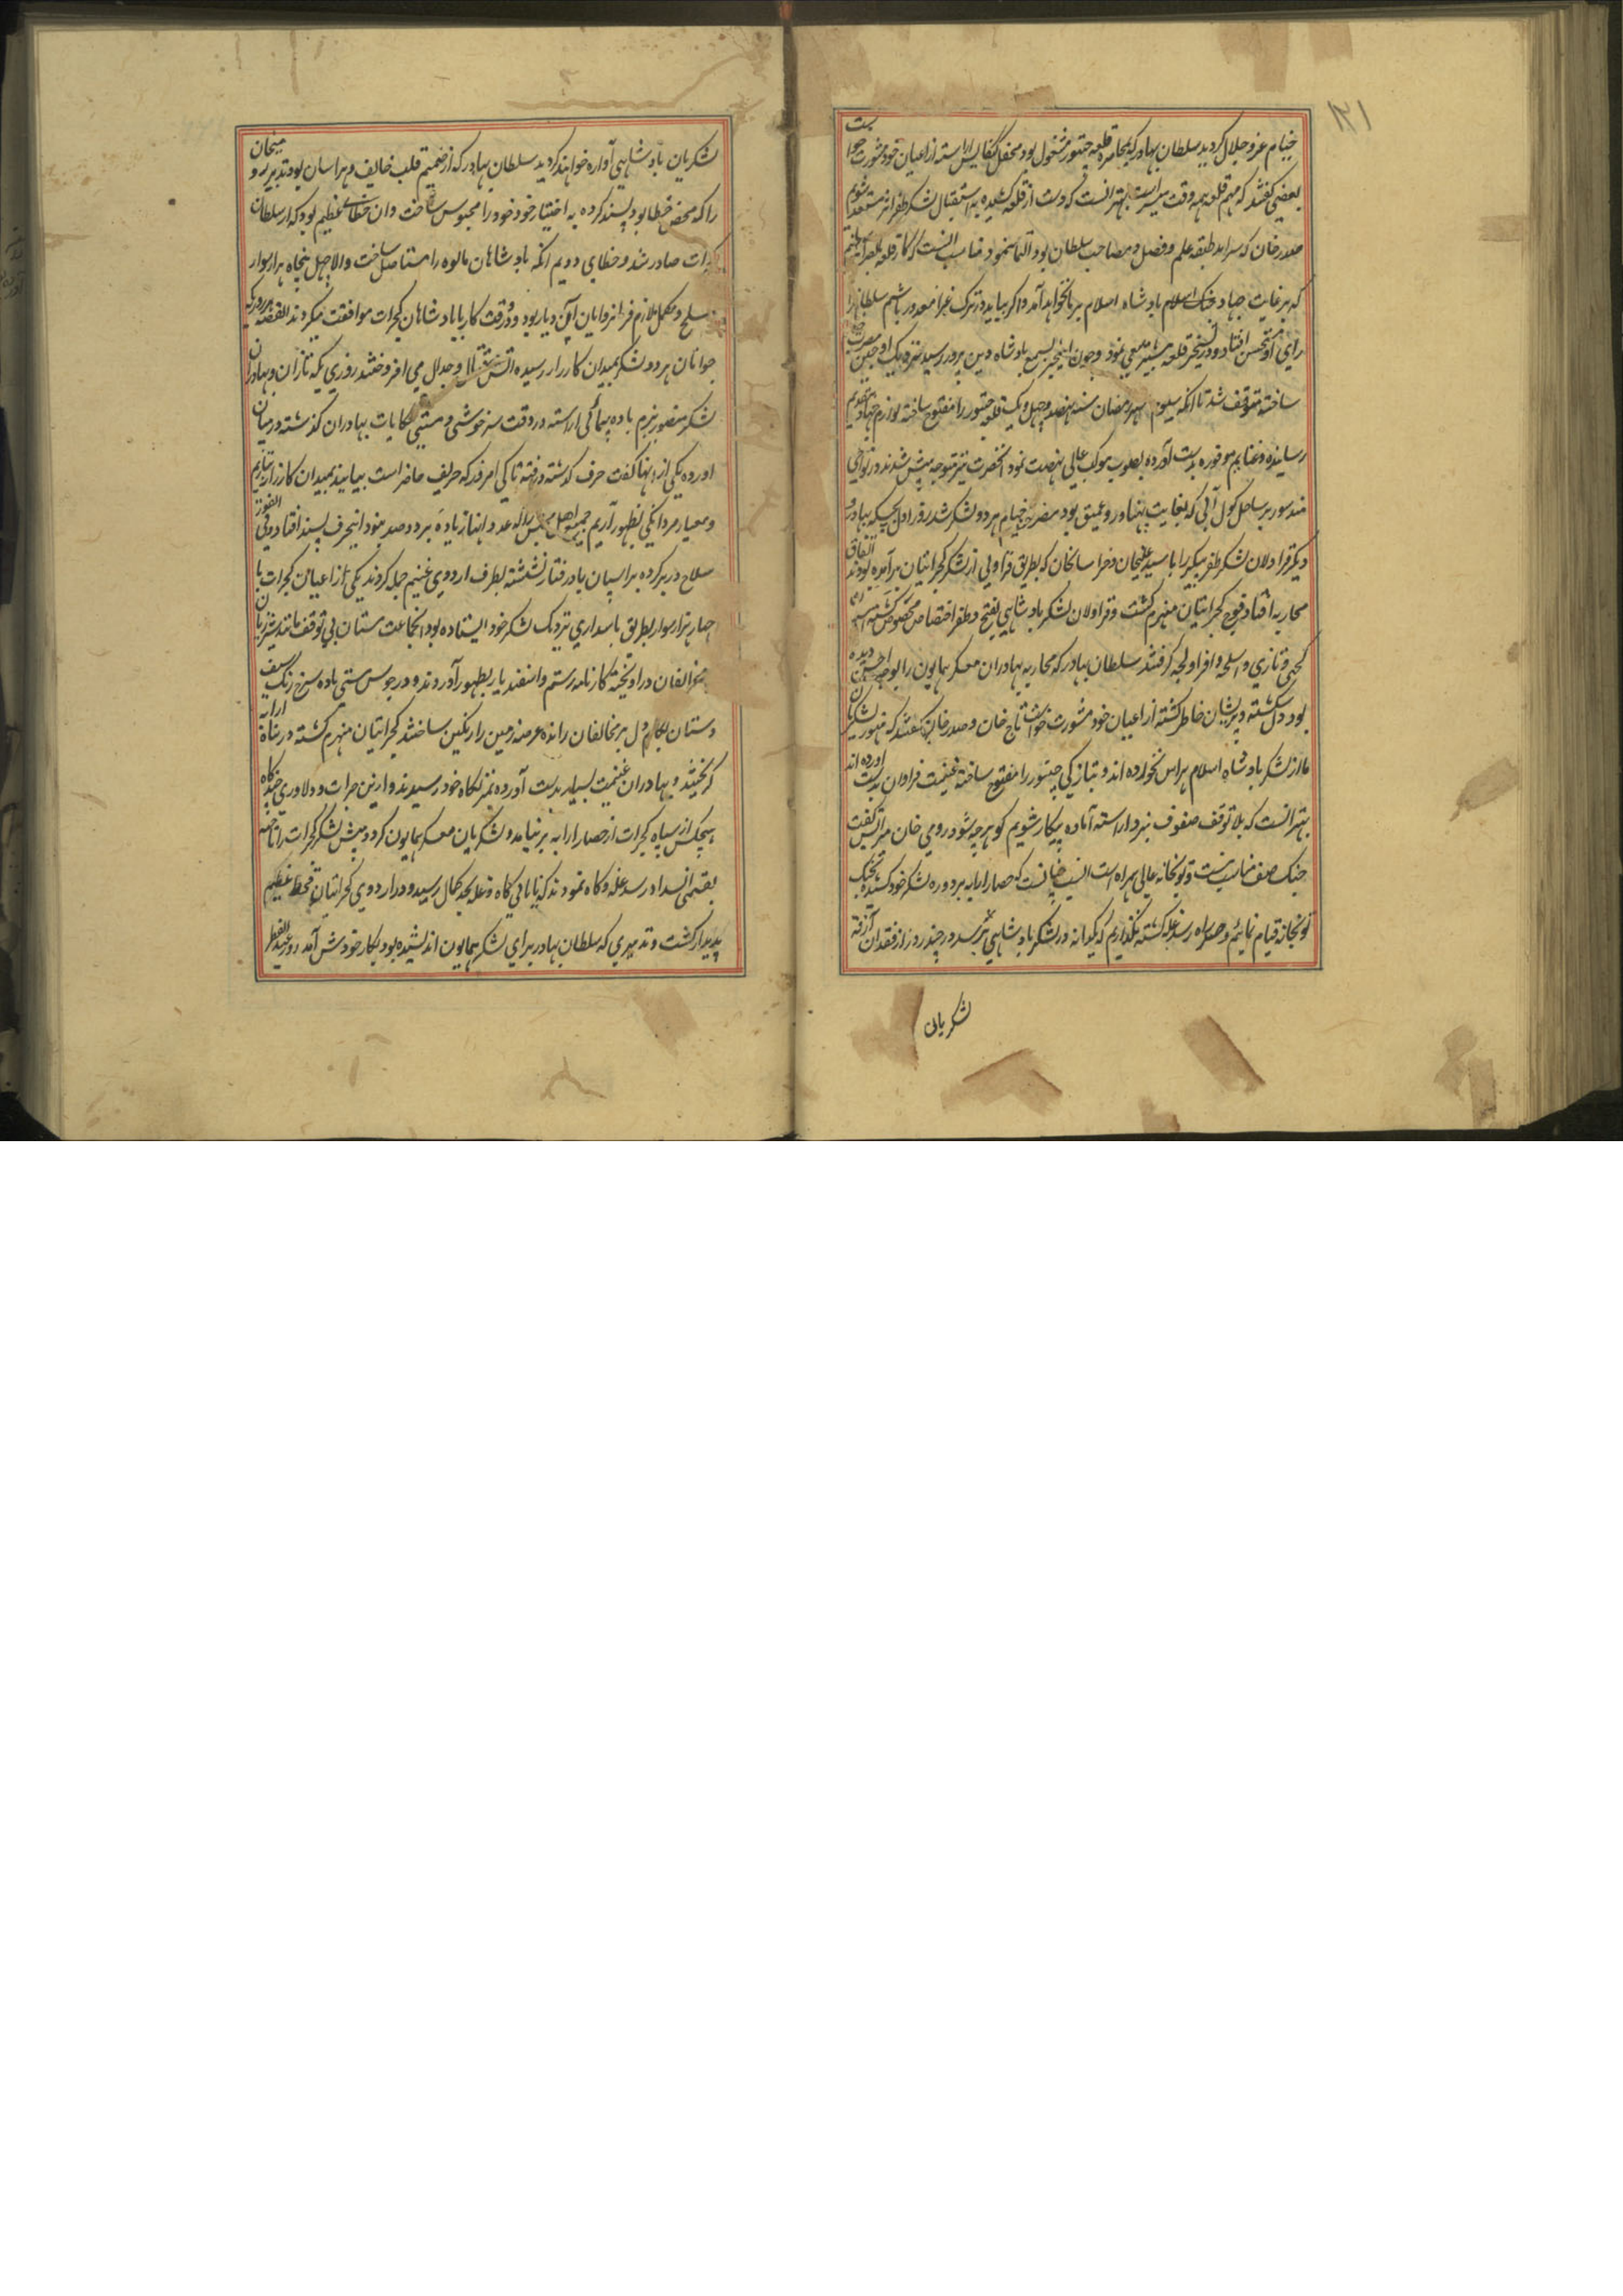 ۱۲۱
خیام عز و جلال کردید سلطان بهادر که بمحاصره قلعه چیتور مشغول بود محفل کنکایش اراسته از اعیان خود مشورت خواست
بعضی کفتند که مهم قلعه همه وقت میسر است بهتر انست که دست از قلعه کشیده به استقبال لشکر ظفر اثر مستعد شویم
صدر خان که سرامد طبقه علم و فضل و مصاحب سلطان بود التماس نمود مناسب انست که کار قلعه
که برغایت جهاد جنک اسلام بادشاه اسلام بر ما نخواهد آمد و اکر بیاید در ترک غزا معذور باشیم سلطان را
رای او مستحسن افتاد و در تسخیر قلعه بیشتر سعی نمود و چون این خبر بسمع بادشاه دین پرور رسید نزدیک اوجین
ساخته متوقف شد تا انکه سیوم شهر رمضان سنه نهصد و چهل و یک قلعه چیتور را مفتوح ساخته لوازم جهاد بتقدیم
رسانیده و غنایم موفوره بدست آورده بصوب موکب عالی نهضت نمود انحضرت نیز متوجه پیش شدند در نواحی
مندسور بر ساحل کول آبی که بغایت پهناور و عمیق بود مضرب خیام هر دو لشکر شد روز اول بجیکه بهادر و
دیکر قراولان لشکر ظفر پیکر را با سید علیخان و خراسانخان که بطریق قراولی از لشکر کجراتیان برآمده بودند اتفاق
محاربه افتاد فوج کجراتیان منهزم کشت و قراولان لشکر بادشاهی بفتح و ظفر اختصاص مخصوص کشته
کجی و تازی و اسلحه وافر اولجه کرفتند سلطان بهادر که محاربه بهادران معسکر همایون را بوجه احسن دیده
بود دل شکسته و پریشان خاطر کشته از اعیان خود مشورت خواست تاج خان و صدر خان کفتند که هنوز لشکریان
ما از لشکر بادشاه اسلام هراس نخورده اند و بتازکی چیتور را مفتوح ساخته غنیمت فراوان بدست اورده اند
بهتر انست که بلا توقف صفوف نبرد اراسته آماده پیکار شویم کو هر چه شود رومی خان میر اتش کفت
جنک صف مناسب نیست و توبخانه عالی همراه است انسب چنانست که حصار ارابه بر دوره لشکر خود کشیده بجنک
توبخانه قیام نمائیم و سر راه رسد غله کشته نکذاریم که یکدانه در لشکر بادشاهی برسد در چند روز از فقدان آزقه
لشکریان
لشکریان بادشاهی آواره خواهند کردید سلطان بهادر که از صمیم قلب خائف و هراسان بود تدبیر رومیخان
را که محض خطا بود پسند کرده به اختیار خود خود را محبوس ساخت و ان خطائی عظیم بود که از سلطان
کجرات صادر شد و خطای دویم انکه بادشاهان مالوه را مستاصل ساخت و الا چهل پنجاه هزار سوار
مسلح و مکمل ملازم فرمانروایان آن دیار بود و در وقت کار با بادشاهان کجرات موافقت میکردند القصه هر روز که
جوانان هر دو لشکر بمیدان کارزار رسیده اتش قتال و جدال می افروختند روزی یکه تازان و بهادران
لشکر منصور بزم باده پیمائی اراسته در وقت سرخوشی و مستی حکایات بهادران کذشته در میان
اورده یکی از انها کفت حرف کذشته و رفته تا کی امروز که حریف حاضر است بیایید بمیدان کارزار بتازیم
و معیار مردانکی بظهور آریم جمیع اهل مجلس را که عدد انها زیاده بر دو صد بنود این حرف پسند افتاد و فی الفور
سلاح در بر کرده بر اسپان باد رفتار نشسته بطرف اردوی غنیم حمله کردند یکی از اعیان کجرات با
چهار هزار سوار بطریق پاسداری نزدیک لشکر خود ایستاده بود انجماعت مستان بی توقف مانند شیر ژیان
بمخالفان دراویخته کارنامه رستم و اسفندیار بظهور آوردند و در جوس مستی باده سرخ رنک سیف
دستان بکام دل بر مخالفان رانده عرصه زمین را رنکین ساختند کجراتیان منهزم کشته در پناه ارابه
کریختند و بهادران غنیمت بسیار بدست آورده بمنزلکاه خود رسیدند و ازین جرات و دلاوری
هیچکس از سپاه کجرات از حصار ارابه بر نیامد و لشکریان معسکر همایون کرد و پیش لشکر کجرات را تاخته
بقسمی انسداد رسد غله و کاه نمودند که نایابی کاه و غله بحد کمال رسید و در اردوی کجراتیان قحط عظیم
پدیدار کشت و تدبیری که سلطان بهادر برای لشکر همایون اندیشیده بود بکار خودش آمد روز عید الفطر